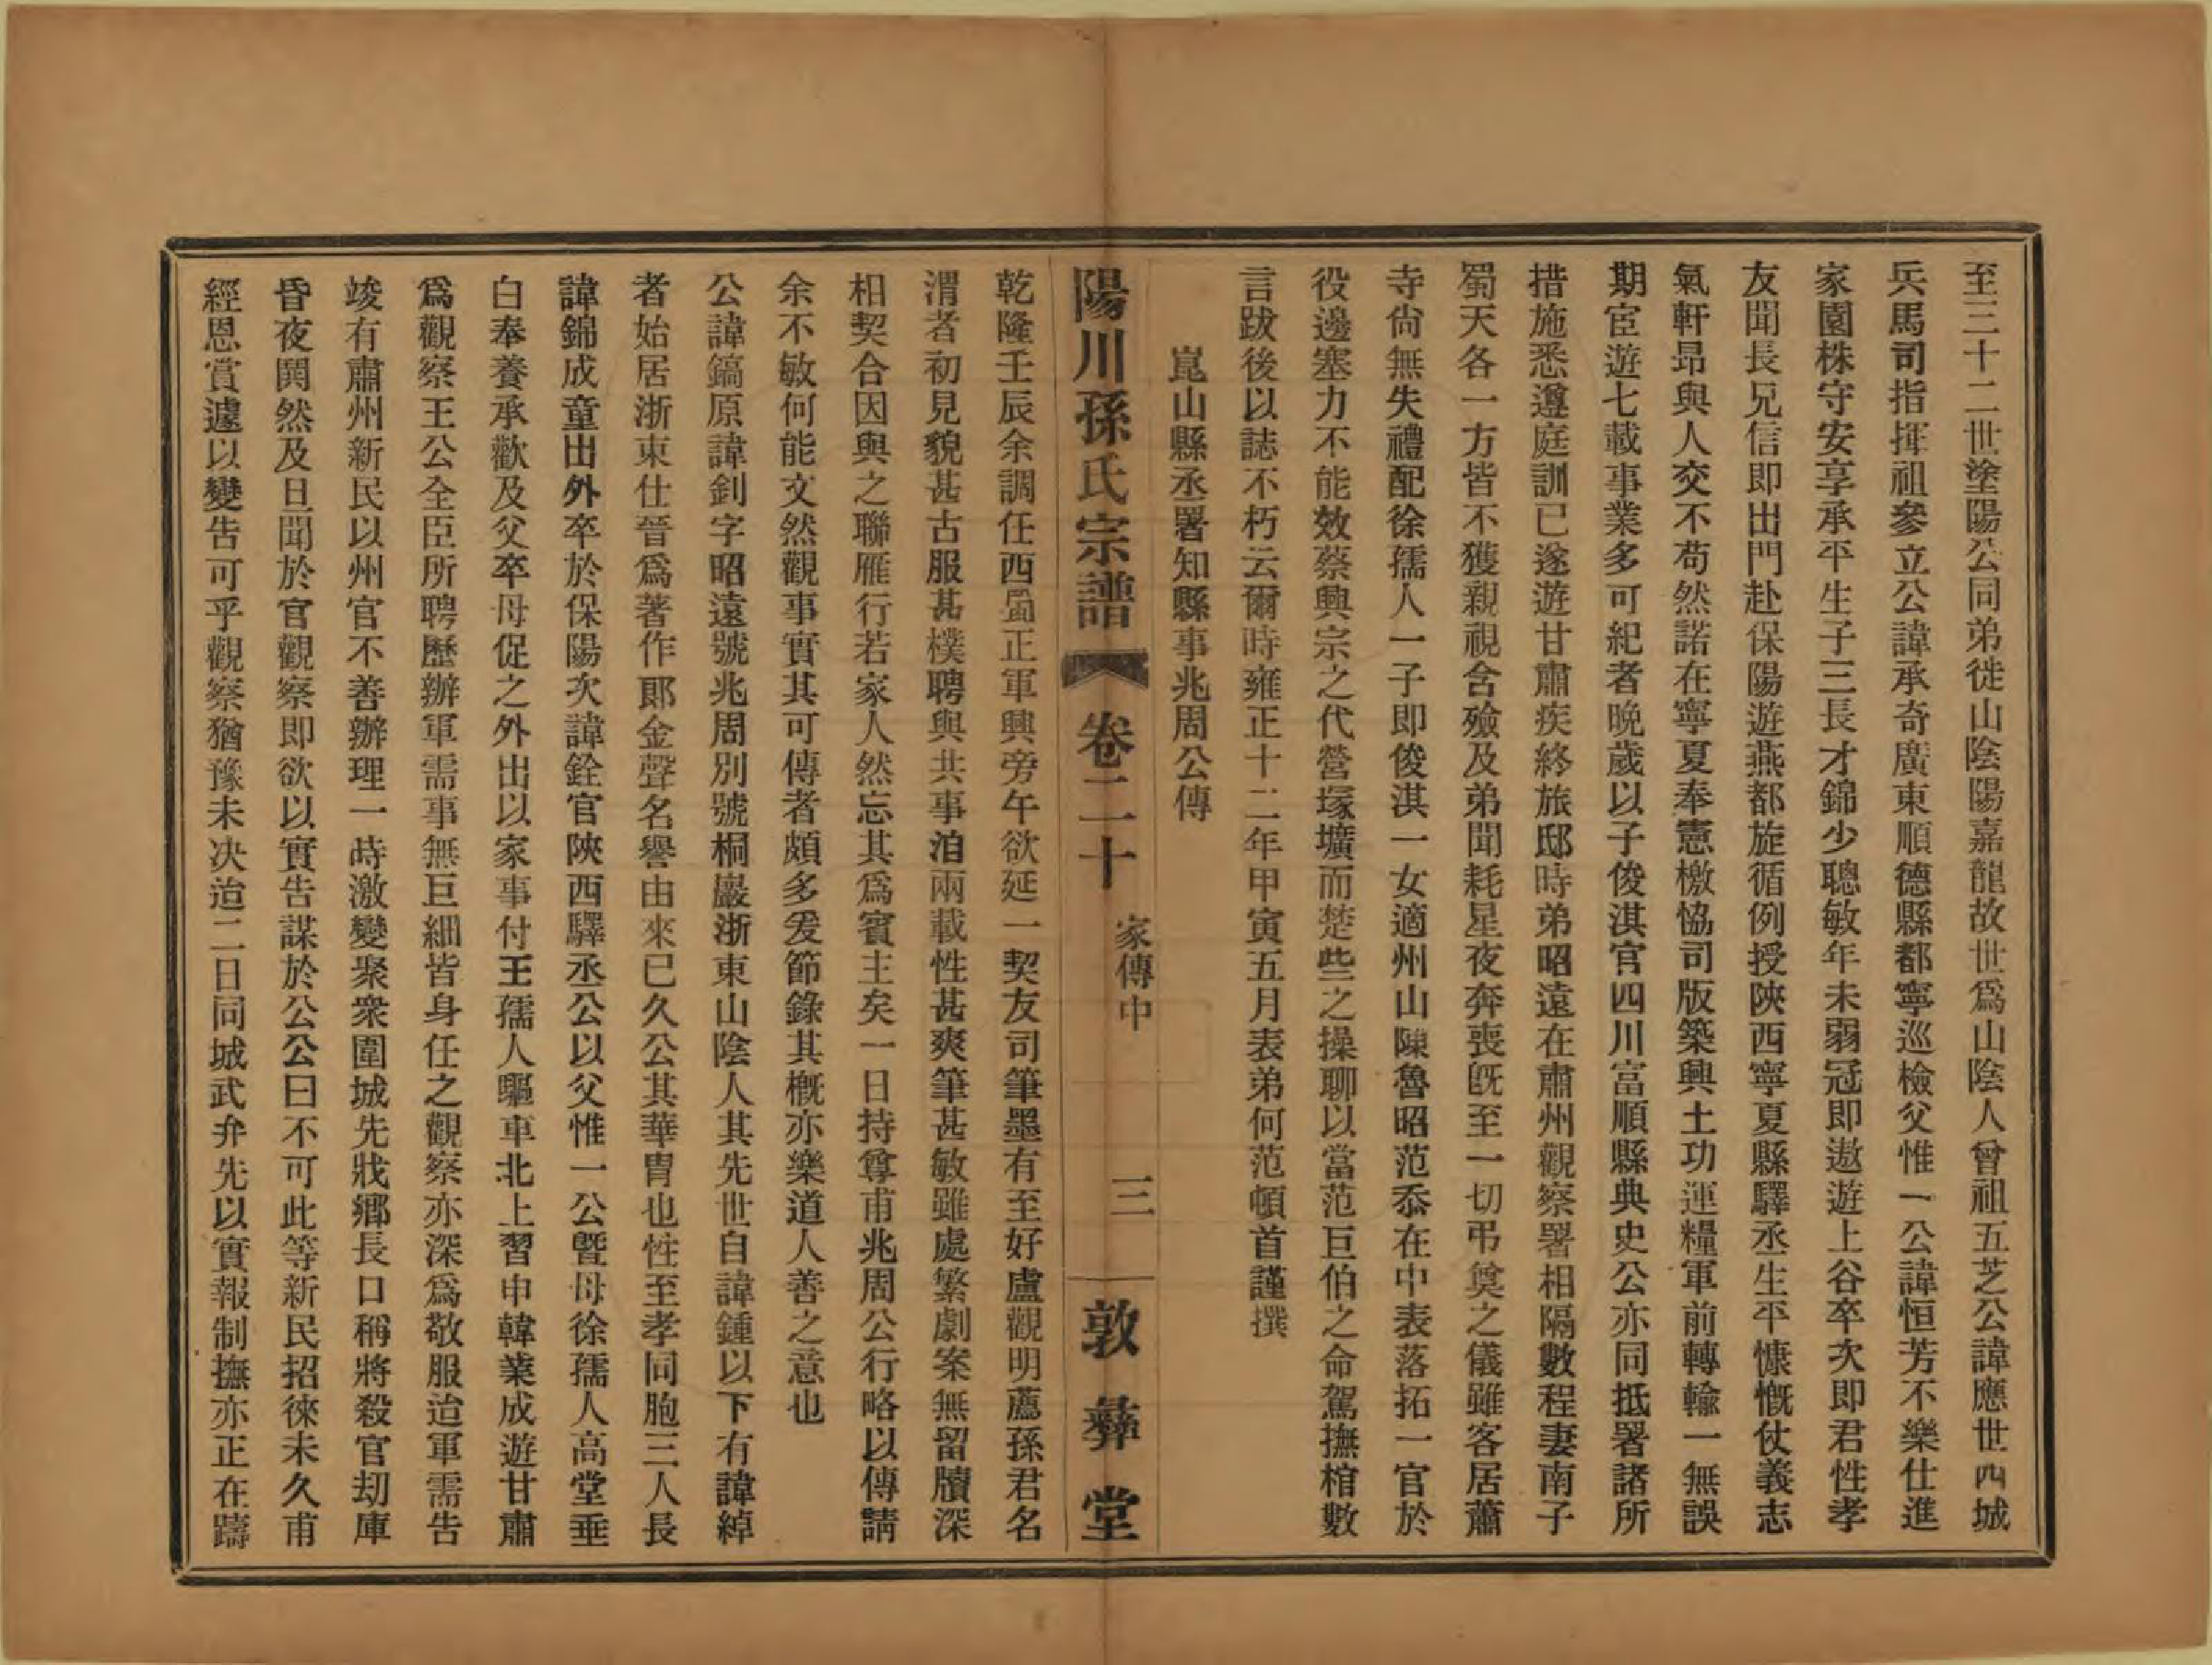 至三十二世塗陽公同弟徙山陰陽嘉龍故世爲山陰人曾祖五芝公諱應世西城
兵馬司指揮祖參立公諱承奇廣東順德縣都寧巡檢父惟一公諱恒芳不樂仕進
家園株守安享承平生子三長才錦少聰敏年未弱冠即遨遊上谷卒次即君性孝
友聞長兄信即出門赴保陽遊燕都旋循例授陜西寧夏縣驛丞生平慷慨仗義志
氣軒昂與人交不苟然諾在寧夏奉憲檄恊司版築興土功運糧軍前轉輸一無誤
期宦遊七載事業多可紀者晚歲以子俊淇官四川富順縣典史公亦同抵署諸所
措施悉遵庭訓已遂遊甘肅疾終旅邸時弟昭遠在肅州觀察署相隔數程妻南子
蜀天各一方皆不獲親視含殮及弟聞耗星夜奔喪既至一切弔奠之儀雖客居蕭
寺尙無失禮配徐孺人一子即俊淇一女適州山陳魯昭范忝在中表落拓一官於
役邊塞力不能效蔡興宗之代營塚壙而楚些之操聊以當范巨伯之命駕撫棺數
言跋後以誌不朽云爾時雍正十二年甲寅五月表弟何范頓首謹撰
崑山縣丞署知縣事兆周公傳
陽川孫氏宗譜 卷二十 家傳中 三 敦彝堂
乾隆壬辰余調任西蜀正軍興旁午欲延一契友司筆墨有至好盧觀明薦孫君名
渭者初見貌甚古服甚樸聘與共事洎兩載性甚爽筆甚敏雖處繁劇案無留牘深
相契合因與之聯雁行若家人然忘其爲賓主矣一日持尊甫兆周公行略以傳請
余不敏何能文然觀事實其可傳者頗多爰節錄其槪亦樂道人善之意也
公諱鎬原諱釗字昭遠號兆周別號桐巖浙東山陰人其先世自諱鍾以下有諱綽
者始居浙東仕晉爲著作郞金聲名譽由來已久公其華冑也性至孝同胞三人長
諱錦成童出外卒於保陽次諱銓官陜西驛丞公以父惟一公曁母徐孺人高堂垂
白奉養承歡及父卒母促之外出以家事付王孺人驅車北上習申韓業成遊甘肅
爲觀察王公全臣所聘歷辦軍需事無巨細皆身任之觀察亦深爲敬服迨軍需告
竣有肅州新民以州官不善辦理一時激變聚衆圍城先戕鄕長口稱將殺官刧庫
昏夜鬨然及旦聞於官觀察即欲以實告謀於公公曰不可此等新民招徠未久甫
經恩賞遽以變告可乎觀察猶豫未决迨二日同城武弁先以實報制撫亦正在躊